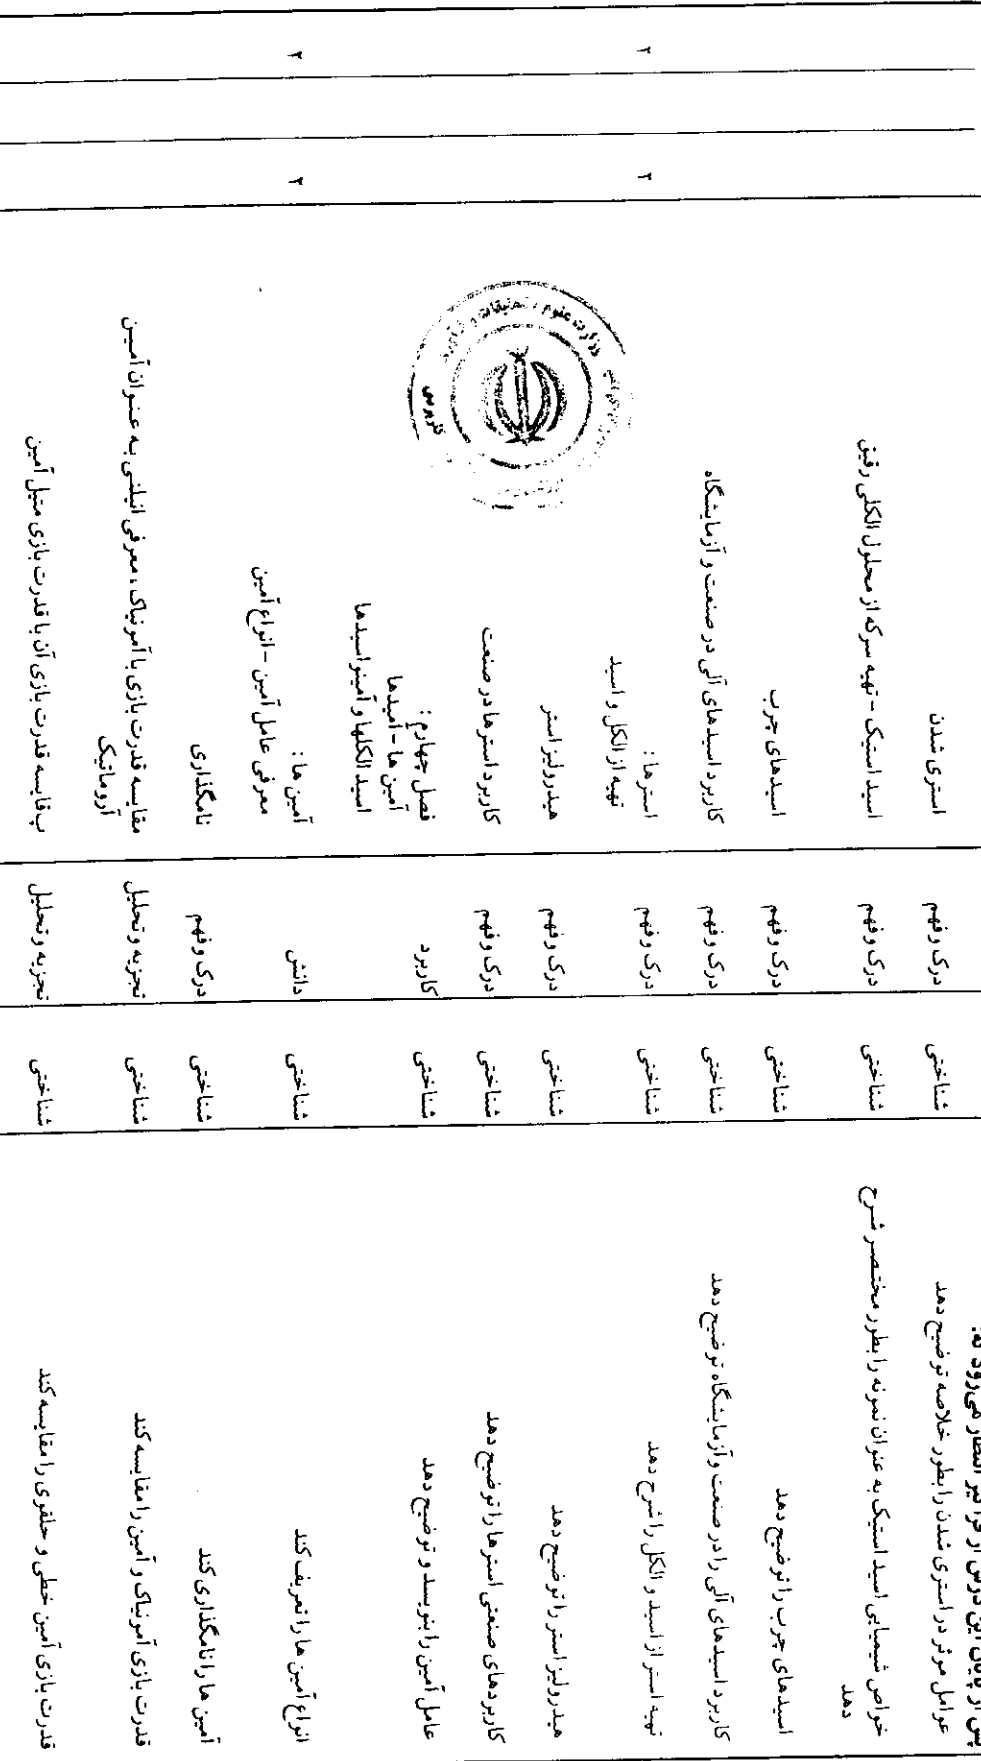 پس از پایان این درس از فراگیر انتظار می‌رود که:
عوامل موثر در استری شدن را بطور خلاصه توضیح دهد
شناختی
درک و فهم
استری شدن
خواص شیمیایی اسید استیک به عنوان نمونه را بطور مختصر شرح
دهد
شناختی
درک و فهم
اسید استیک - تهیه سرکه از محلول الکلی رقیق
اسیدهای چرب را توضیح دهد
شناختی
درک و فهم
اسیدهای چرب
کاربرد اسیدهای آلی را در صنعت و آزمایشگاه توضیح دهد
شناختی
درک و فهم
کاربرد اسیدهای آلی در صنعت و آزمایشگاه
تهیه استر از اسید و الکل را شرح دهد
شناختی
درک و فهم
استرها :
تهیه از الکل و اسید
۲
۲
هیدرولیز استر را توضیح دهد
شناختی
درک و فهم
هیدرولیز استر
کاربردهای صنعتی استرها را توضیح دهد
شناختی
درک و فهم
کاربرد استرها در صنعت
عامل آمین را بنویسد و توضیح دهد
شناختی
کاربرد
فصل چهارم :
آمین ها - آمیدها
اسید الکلها و آمینو اسیدها
انواع آمین ها را تعریف کند
شناختی
دانش
آمین ها :
معرفی عامل آمین - انواع آمین
۲
۲
آمین ها را نامگذاری کند
شناختی
درک و فهم
نامگذاری
قدرت بازی آمونیاک و آمین را مقایسه کند
شناختی
تجزیه و تحلیل
مقایسه قدرت بازی با آمونیاک ، معرفی انیلین به عنوان آمین
آروماتیک
قدرت بازی آمین خطی و حلقوی را مقایسه کند
شناختی
تجزیه و تحلیل
مقایسه قدرت بازی آن با قدرت بازی متیل آمین
وزارت علوم ، تحقیقات و